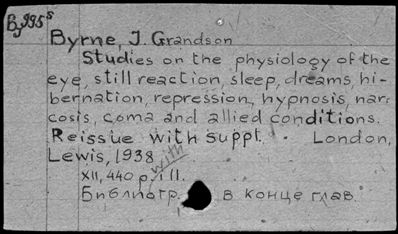 B995s
Byrne, J. Grandson
Studies on the physiology of the
eye, still reaction, sleep, dreams, hi-
bernation, repression, hypnosis, nar-
cosis, coma and allied conditions.
Reissue with suppt. London,
Lewis, 1938.
XII, 440 p. with ill.
Библиогр. в конце глав.